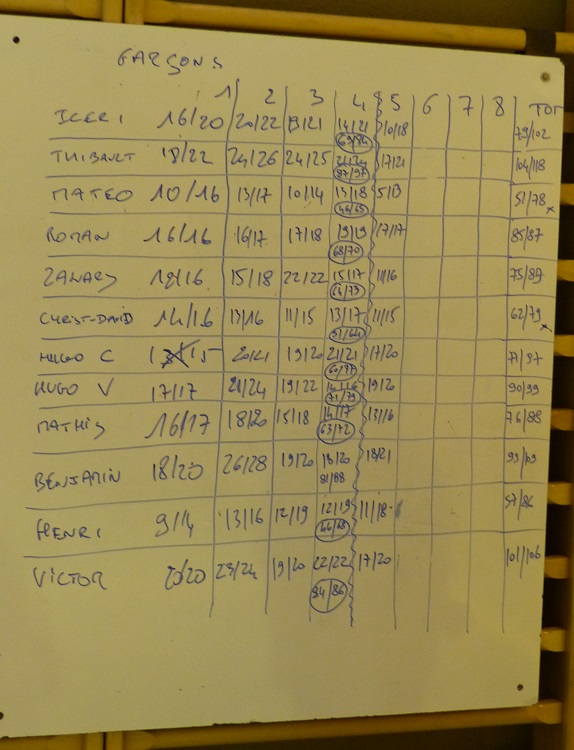 GARSONS
1 2 3 4 5 6 7 8 TOT
16/20 20/22 14/21 10/18 79/102
63/84
THIBAULT 18/22 24/26 24/25 21/24 17/21 104/118
87/97
MATEO 10/16 13/17 10/14 13/18 5/13 51/78 x
46/65
ROMAN 16/16 16/17 17/18 19/19 17/17 85/87
68/70
15/18 22/22 15/17 11/16 75/89
CHRIST-DAVID 14/16 13/16 11/15 13/17 11/15 62/79 x
51/64
HUGO C 20/21 19/20 21/21 17/20
HUGO V 17/17 21/24 19/22 14/16 19/20 90/99
71/79
MATHIS 16/17 18/20 15/18 14/17 13/16 76/88
63/72
BENJAMIN 18/20 26/28 19/20 18/20 18/21
81/88
HENRI 9/14 13/16 12/19 12/19 11/18 57/86
46/68
VICTOR 20/20 23/24 19/20 22/22 17/20 101/106
84/86